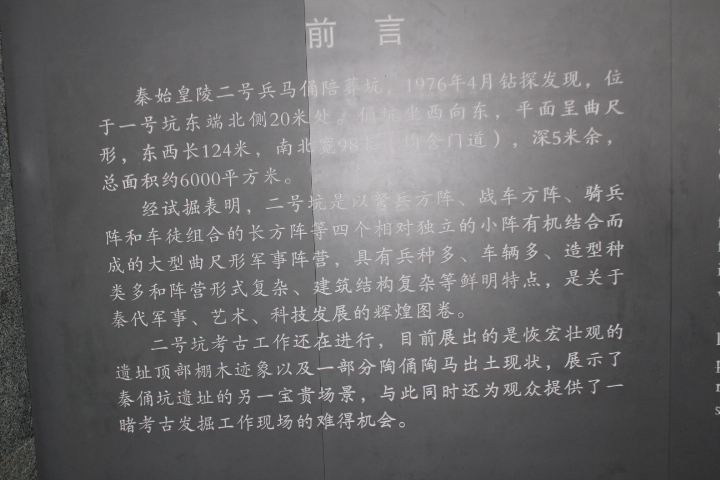 前 言
秦始皇陵二号兵马俑陪葬坑，1976年4月钻探发现，位
于一号坑东端北侧20米处。俑坑坐西向东，平面呈曲尺
形，东西长124米，南北宽98米（均含门道），深5米余，
总面积约6000平方米。
经试掘表明，二号坑是以弩兵方阵、战车方阵、骑兵
阵和车徒组合的长方阵等四个相对独立的小阵有机结合而
成的大型曲尺形军事阵营，具有兵种多、车辆多、造型种
类多和阵营形式复杂、建筑结构复杂等鲜明特点，是关于
秦代军事、艺术、科技发展的辉煌图卷。
二号坑考古工作还在进行，目前展出的是恢宏壮观的
遗址顶部棚木迹象以及一部分陶俑陶马出土现状，展示了
秦俑坑遗址的另一宝贵场景，与此同时还为观众提供了一
睹考古发掘工作现场的难得机会。